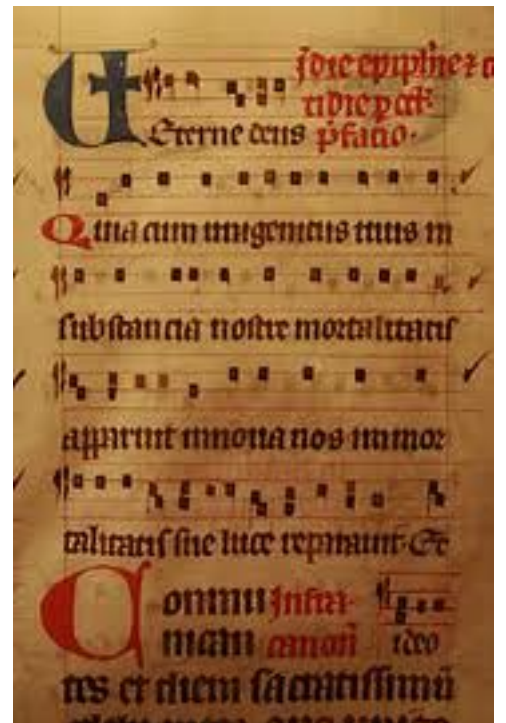 Eterne deus
prefatio.
Quia cum unigenitus tuus in
substancia nostre mortalitatis
apparuit in noua nos inmor
talitatis sue luce reparauit. Et
Commu Infra
canon ideo
tes et diem sacratissimū